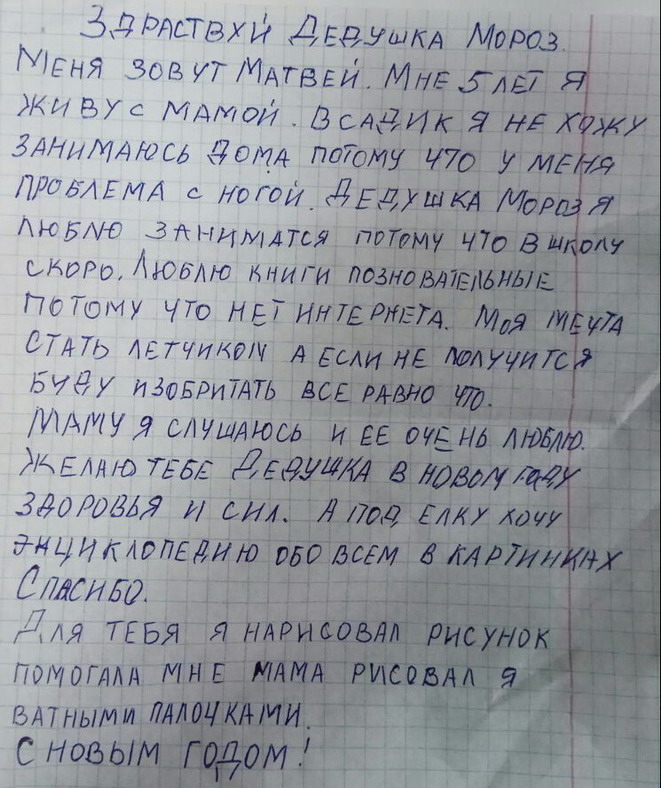 ЗДРАСТВХЙ ДЕДУШКА МОРОЗ.
МЕНЯ ЗОВУТ МАТВЕЙ. МНЕ 5 ЛЕТ Я
ЖИВУ С МАМОЙ. В САДИК Я НЕ ХОЖУ
ЗАНИМАЮСЬ ДОМА ПОТОМУ ЧТО У МЕНЯ
ПРОБЛЕМА С НОГОЙ. ДЕДУШКА МОРОЗ Я
ЛЮБЛЮ ЗАНИМАТСЯ ПОТОМУ ЧТО В ШКОЛУ
СКОРО. ЛЮБЛЮ КНИГИ ПОЗНОВАТЕЛЬНЫЕ
ПОТОМУ ЧТО НЕТ ИНТЕРНЕТА. МОЯ МЕЧТА
СТАТЬ ЛЕТЧИКОМ А ЕСЛИ НЕ ПОЛУЧИТСЯ
БУДУ ИЗОБРИТАТЬ ВСЕ РАВНО ЧТО.
МАМУ Я СЛУШАЮСЬ И ЕЕ ОЧЕНЬ ЛЮБЛЮ.
ЖЕЛАЮ ТЕБЕ ДЕДУШКА В НОВОМ ГОДУ
ЗДОРОВЬЯ И СИЛ. А ПОД ЕЛКУ ХОЧУ
ЭНЦИКЛОПЕДИЮ ОБО ВСЕМ В КАРТИНКАХ
СПАСИБО.
ДЛЯ ТЕБЯ Я НАРИСОВАЛ РИСУНОК
ПОМОГАЛА МНЕ МАМА РИСОВАЛ Я
ВАТНЫМИ ПАЛОЧКАМИ.
С НОВЫМ ГОДОМ!